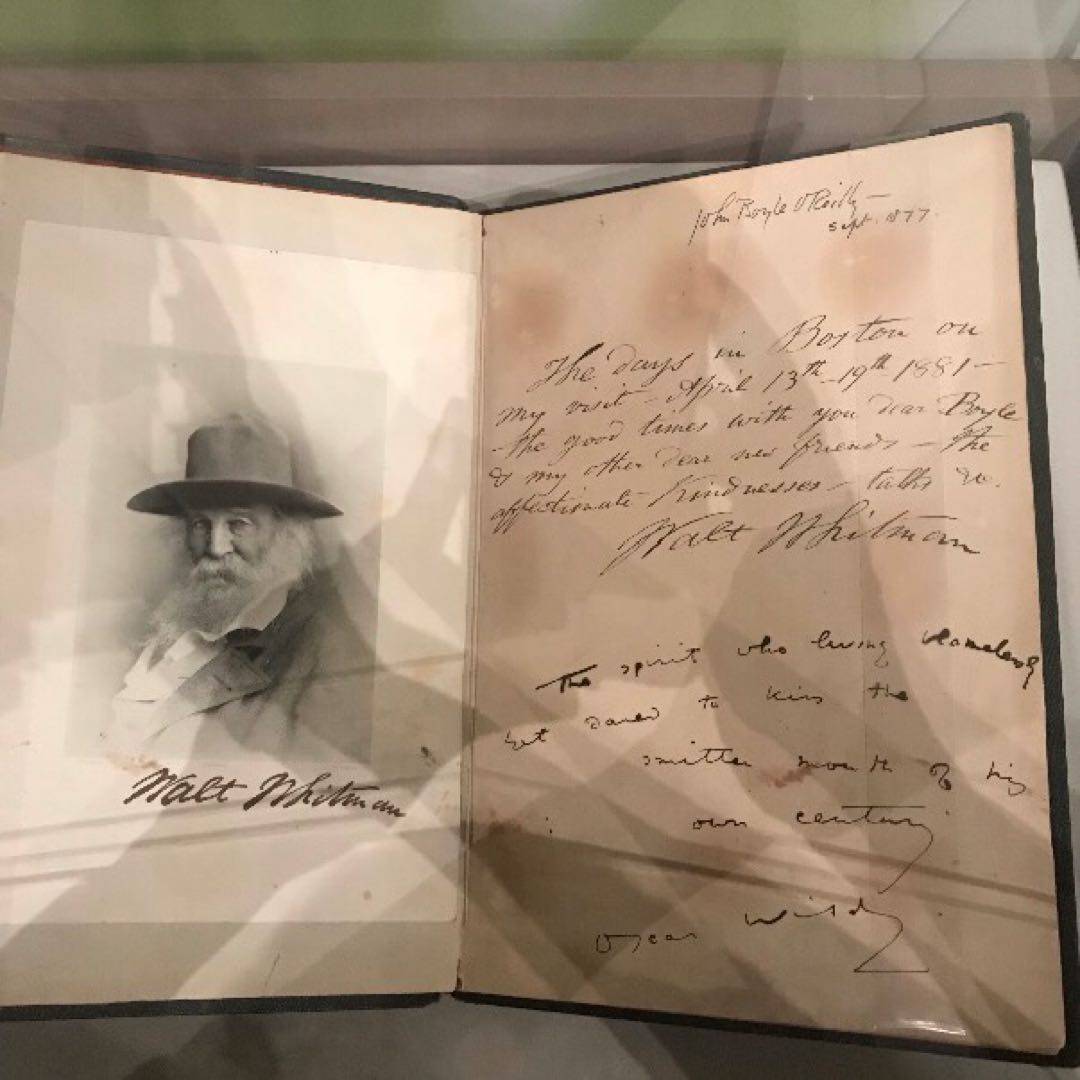 Walt Whitman
John Boyle O'Reilly —
Sept. 1877.
The days in Boston on
my visit — April 13th – 19th 1881 —
– the good times with you dear Boyle
& my other dear new friends – the
affectionate kindnesses – talks &c.
Walt Whitman
The spirit who living blamelessly
but dared to kiss the
smitten mouth of his
own century
Oscar Wilde